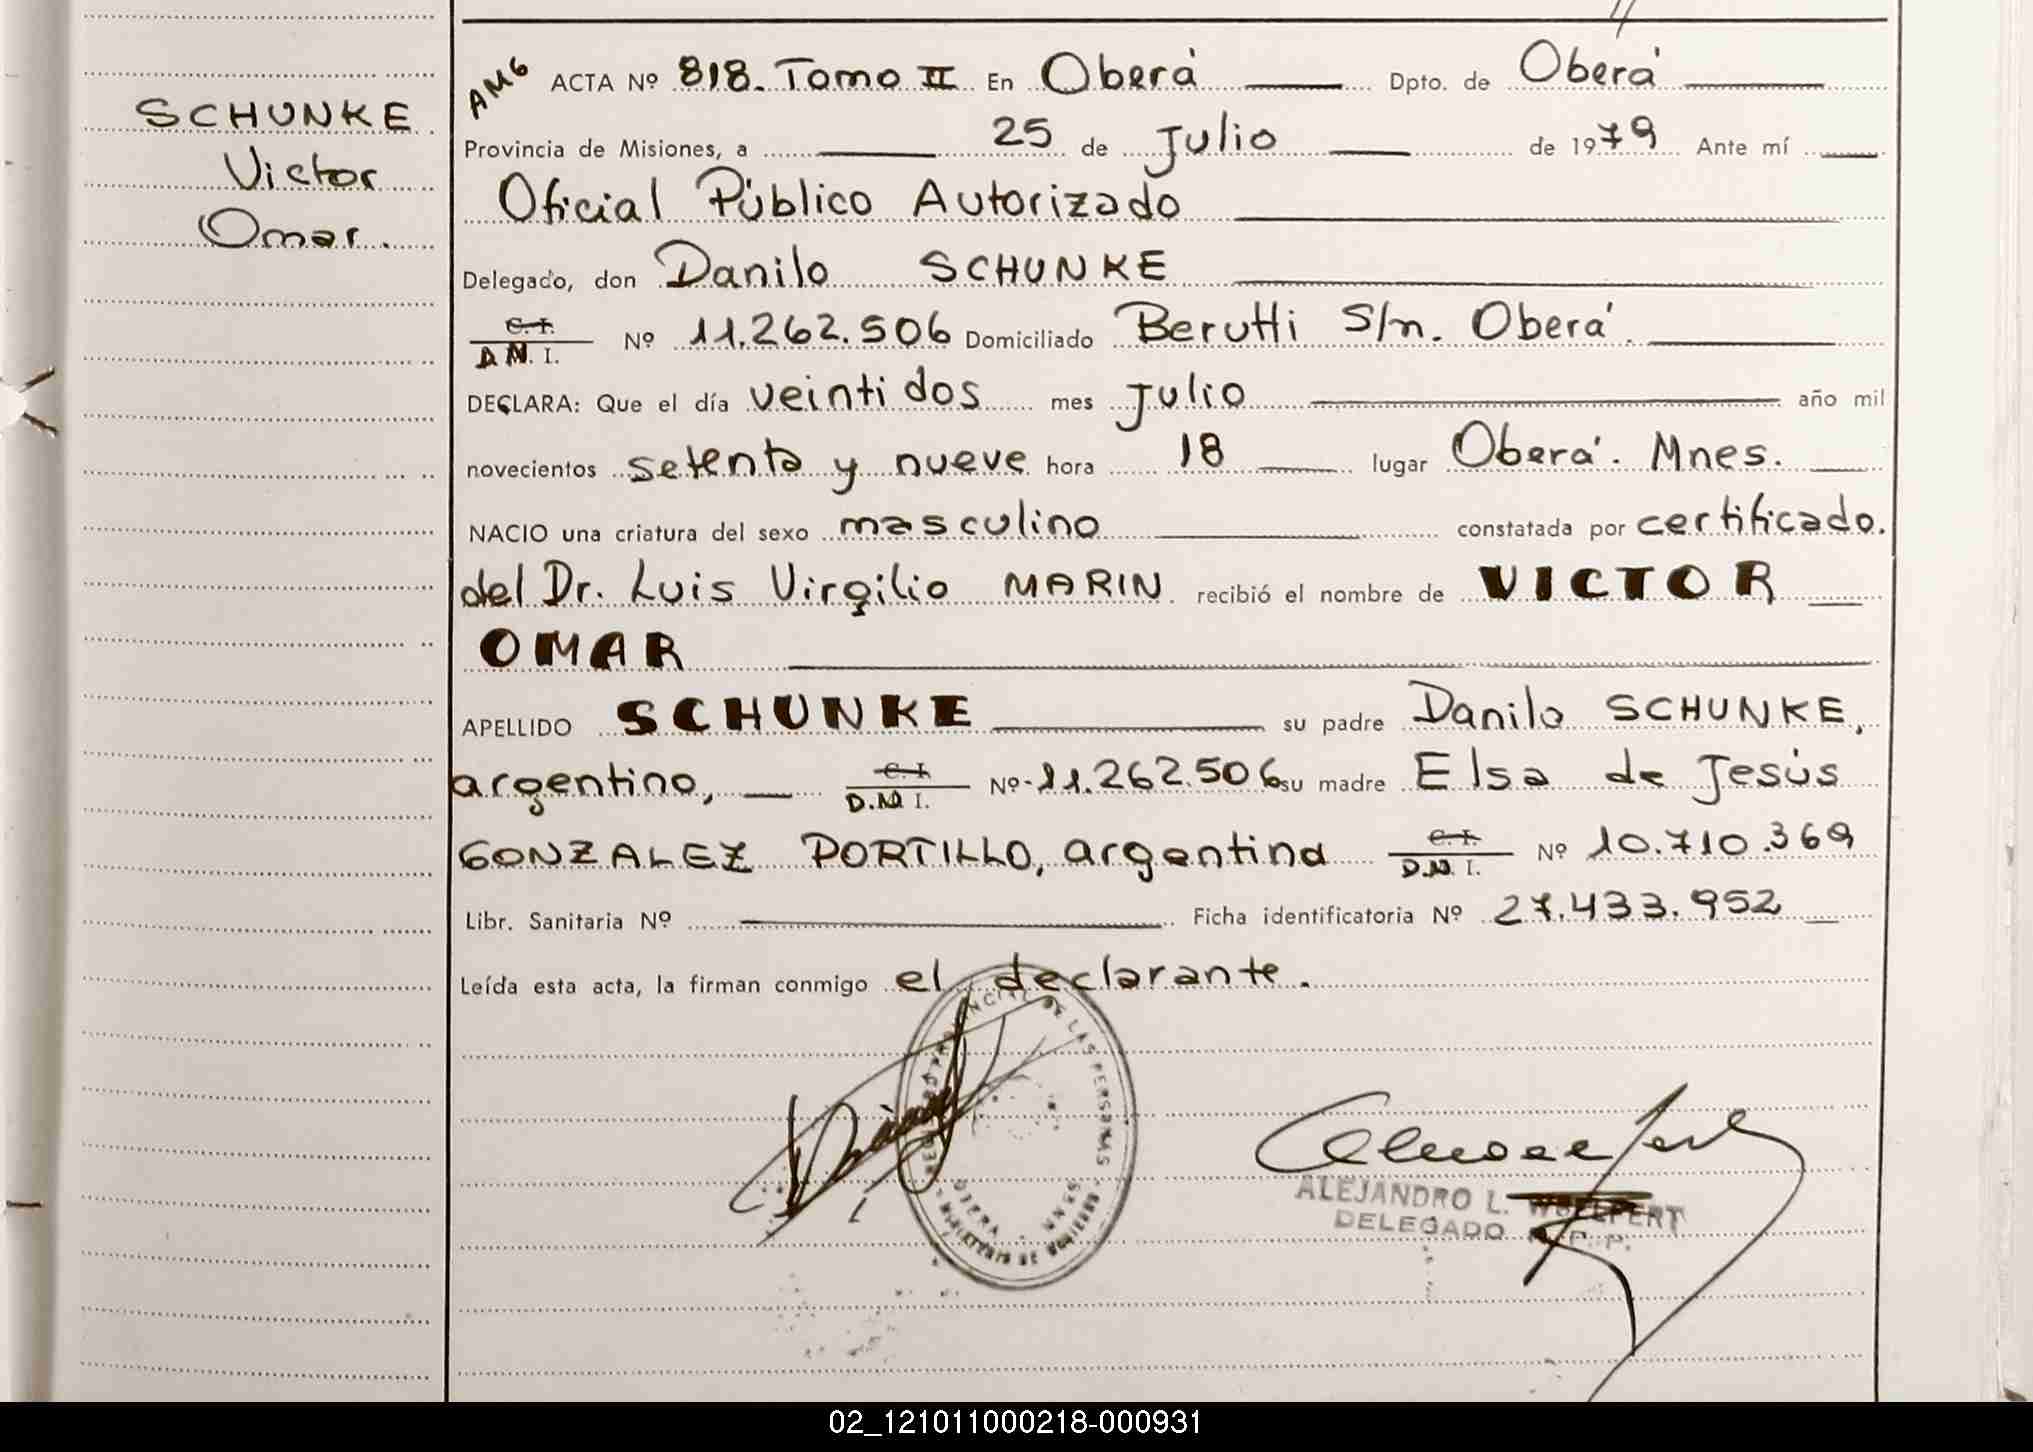 SCHUNKE
Victor
Omar.
AMG ACTA Nº 818. Tomo II En Oberá Dpto. de Oberá
Provincia de Misiones, a 25 de Julio de 1979 Ante mí
Oficial Público Autorizado
Delegado, don Danilo SCHUNKE
C. I.
D.N. I. Nº 11.262.506 Domiciliado Berutti S/n. Oberá.
DECLARA: Que el día veinti dos mes Julio año mil
novecientos setenta y nueve hora 18 lugar Oberá. Mnes.
NACIO una criatura del sexo masculino constatada por certificado.
del Dr. Luis Virgilio MARIN recibió el nombre de VICTOR
OMAR
APELLIDO SCHUNKE su padre Danilo SCHUNKE,
argentino, C. I.
D.N. I. Nº 11.262.506 su madre Elsa de Jesús
GONZALEZ PORTILLO, argentina C. I.
D.N. I. Nº 10.710.369
Libr. Sanitaria Nº Ficha identificatoria Nº 27.433.952
Leída esta acta, la firman conmigo el declarante.
PROVINCIAL DE LAS PERSONAS
OBERA - MNES
MINISTERIO DE GOBIERNO
ALEJANDRO L. WOELPERT
DELEGADO R. P. P.
02_121011000218-000931